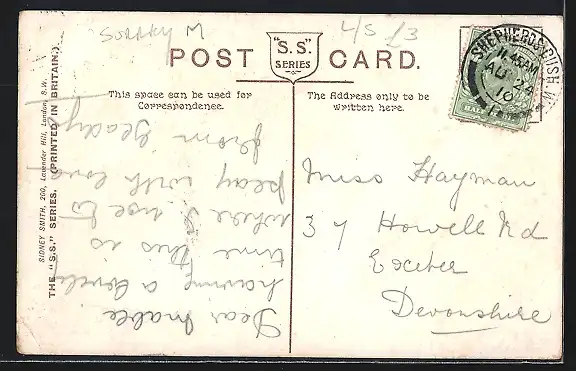 SURREY M
4/S £3
POST "S.S." SERIES CARD.
This space can be used for
Correspondence.
The Address only to be
written here.
SHEPHERDS BUSH. W.
1.45AM
AU 24
10
Dear Mable
having a lovely
time this is
where I use to
play with love
from Gladys
Miss Hayman
37 Howell Rd
Exeter
Devonshire
SIDNEY SMITH, 260, Lavender Hill, London, S.W.
THE "S.S." SERIES. (PRINTED IN BRITAIN.)